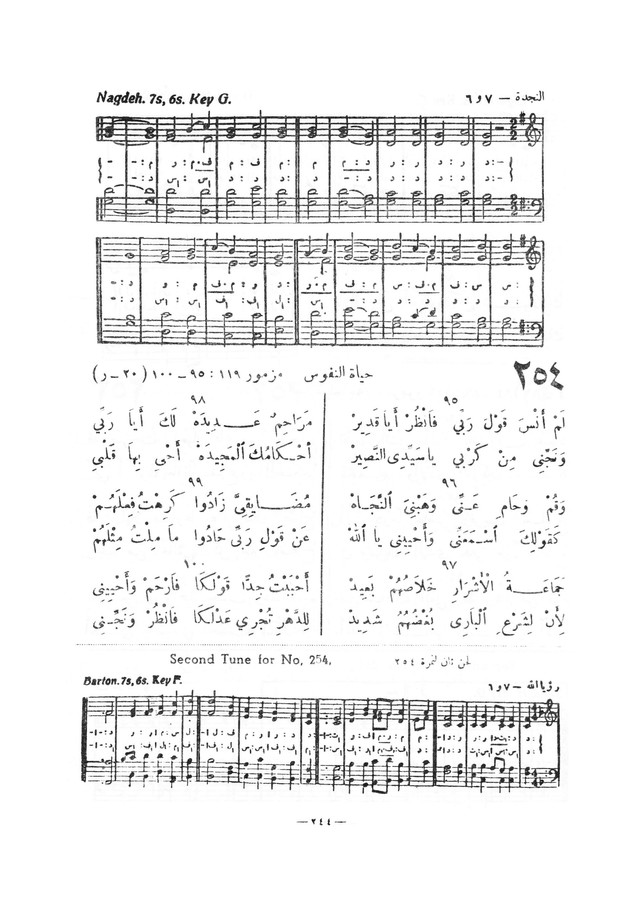 Nagdeh. 7s, 6s. Key G.
النجدة – ٧ و ٦
٢٥٤
حياة النفوس مزمور ١١٩ : ٩٥ – ١٠٠ (٢٠ – ر)
٩٥
لَمْ أَنْسَ قَوْلَ رَبِّي فَانْظُرْ أَيا قَدِيرْ
وَنَجِّنِي مِنْ كَرْبِي يا سَيِّدِي النَّصِيرْ
٩٦
وَقُمْ وَحَامِ عَنِّي وَهَبْنِيَ النَّجَاهْ
كَقَوْلِكَ اسْمَعَنِّي وَأَحْيِينِي يا اللهْ
٩٧
جَمَاعَةُ الْأَشْرَارِ خَلَاصُهُمْ بَعِيدْ
لِأَنَّ لِشَرْعِ الْبَارِي بُغْضُهُمُ شَدِيدْ
٩٨
مَرَاحِمٌ عَدِيدَهْ لَكَ أَيَا رَبِّي
أَحْكَامُكَ الْمَجِيدَهْ أَحْيِ بِهَا قَلْبِي
٩٩
مُضَايِقِيَّ زَادُوا كَرِهْتُ فِعْلَهُمْ
عَنْ قَوْلِ رَبِّي حَادُوا مَا مِلْتُ مِثْلَهُمْ
١٠٠
أَحْبَبْتُ جِدًّا قَوْلَكَا فَارْحَمْ وَأَحْيِينِي
لِلدَّهْرِ تُجْرِي عَدْلَكَا فَانْظُرْ وَنَجِّنِي
Second Tune for No, 254,
لحن ثان لنمرة ٢٥٤
Barton. 7s, 6s. Key F.
رؤيا الله – ٧ و ٦
— ٢٤٤ —